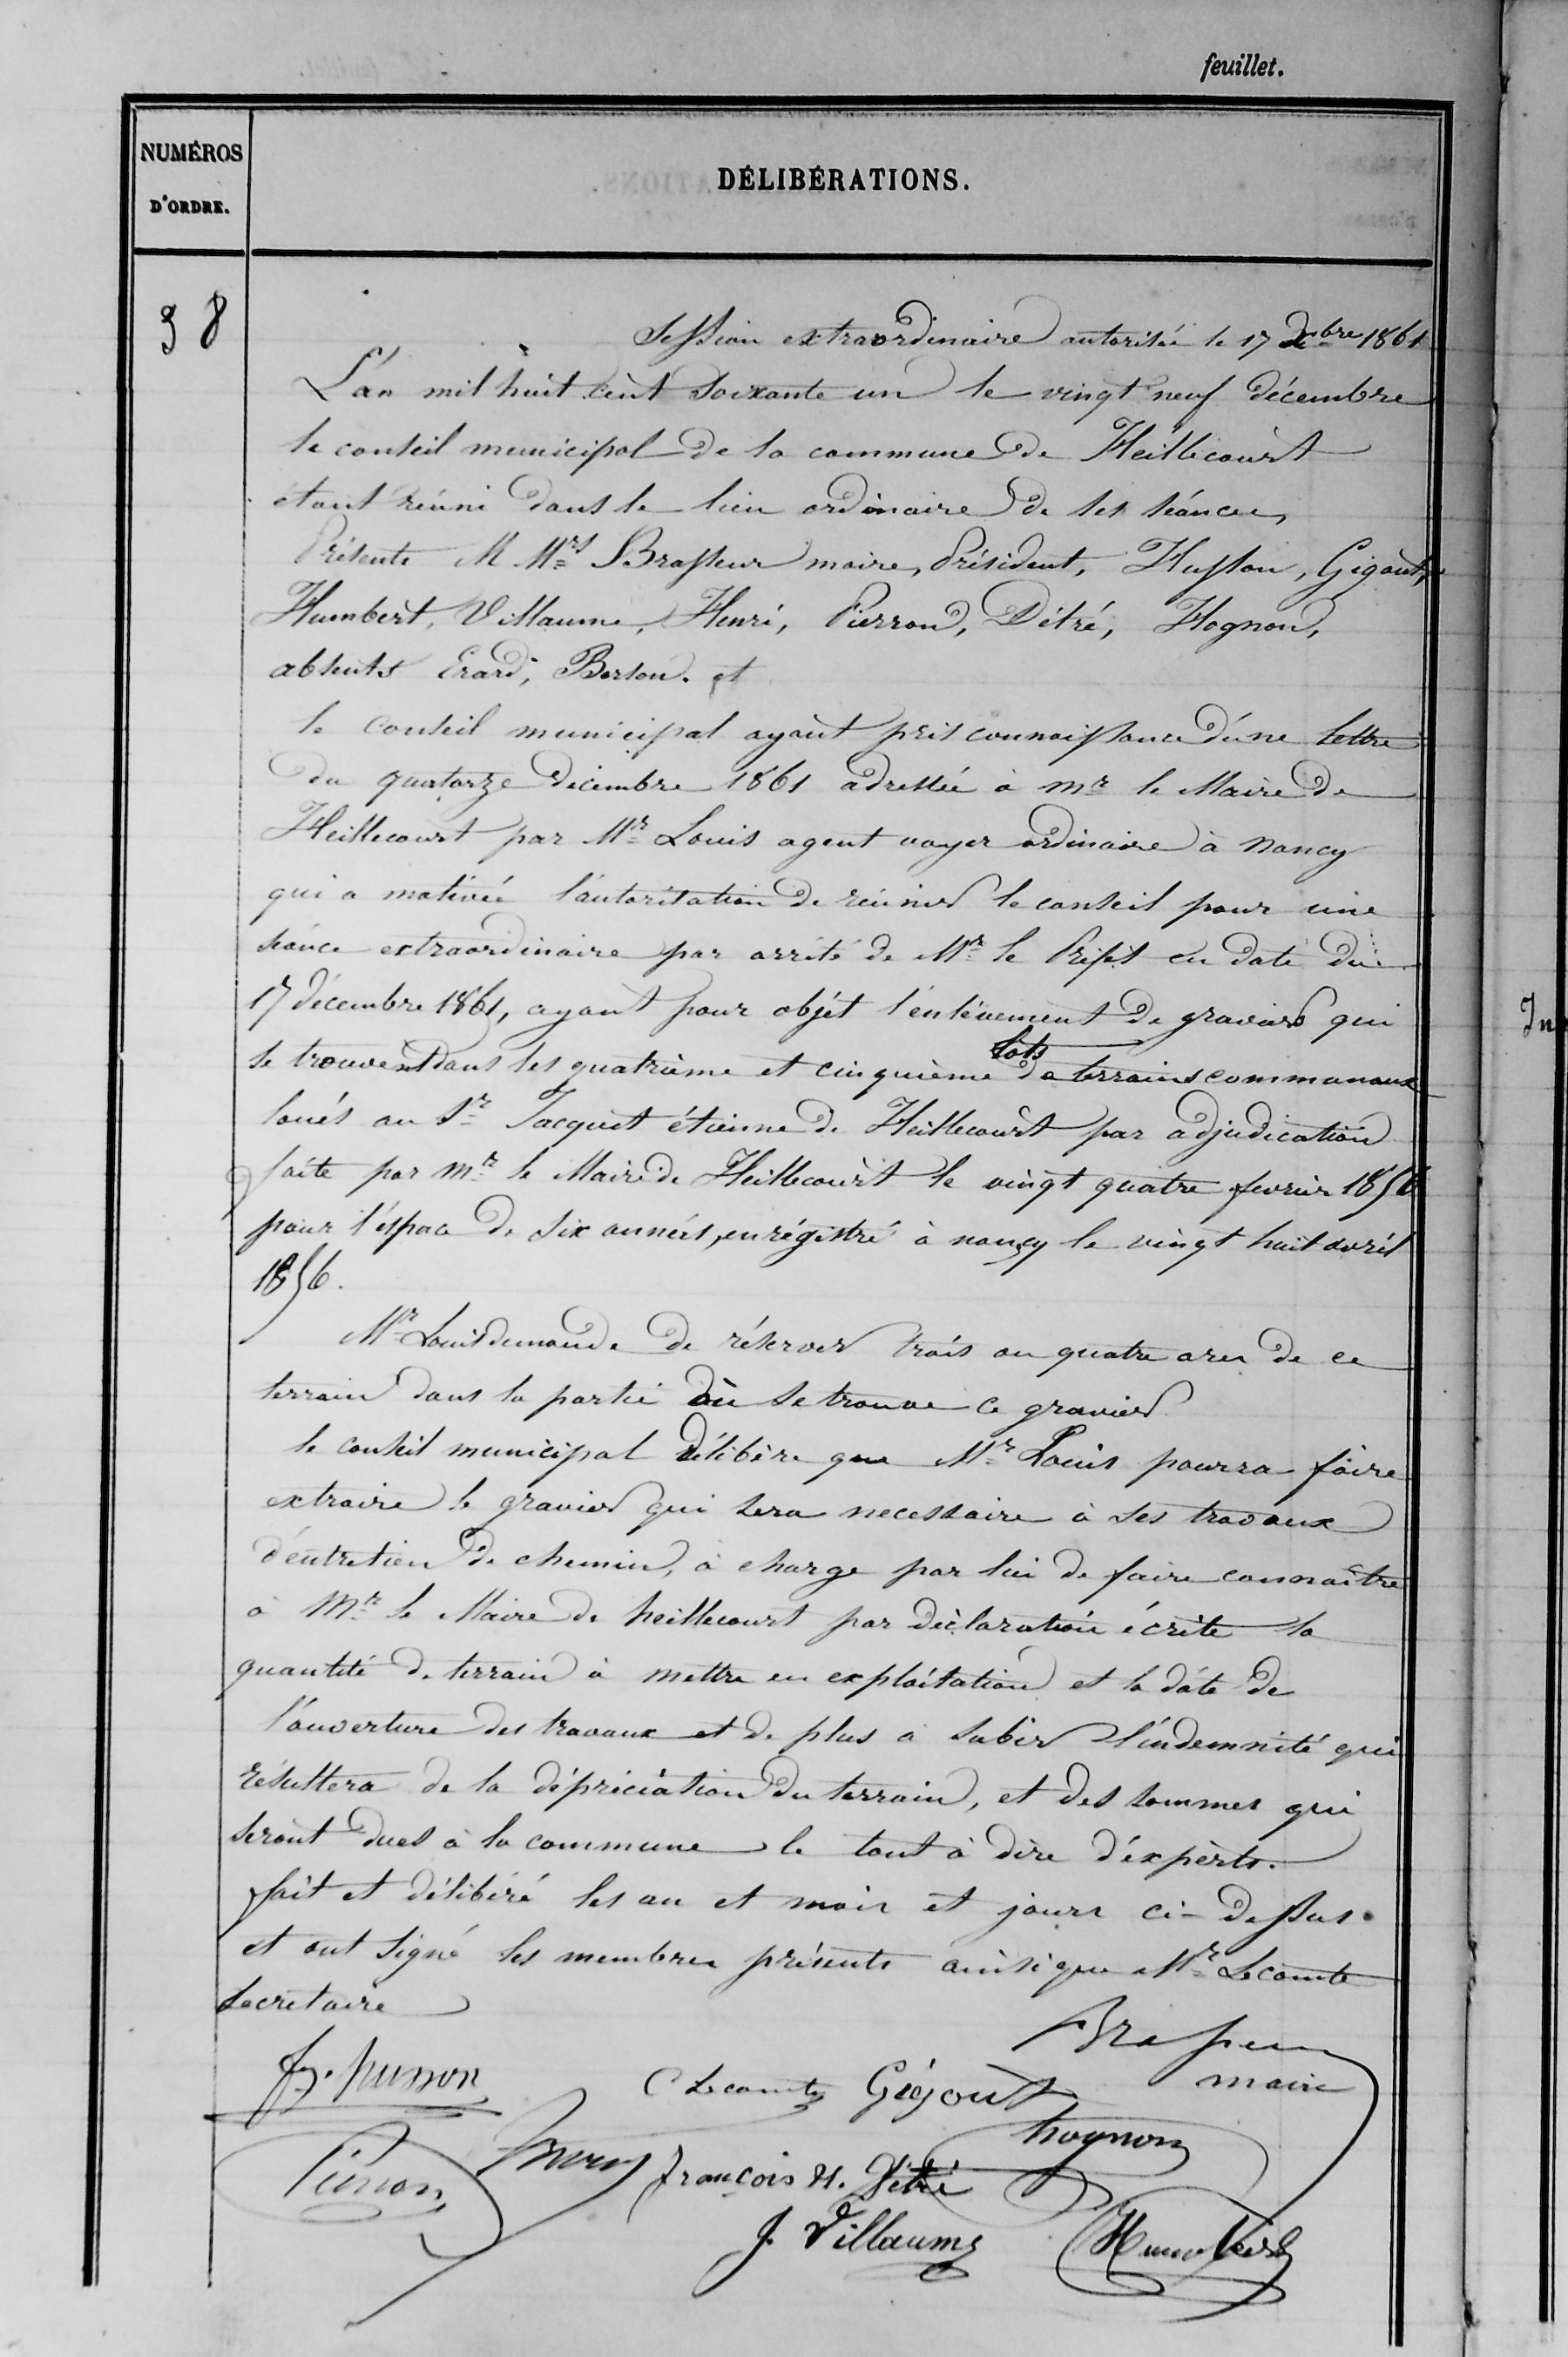 feuillet.
NUMÉROS
D'ORDRE.
DÉLIBÉRATIONS.
98
Session extraordinaire autorisée le 17 Xbre 1861
L'an mil huit cent soixante un le vingt neuf décembre
le conseil municipal de la commune de Heillecourt
étant réuni dans le lieu ordinaire de ses séances,
Présents M Mrs Brasseur maire, Président, Husson, Gigout,
Humbert, Villaume, Henri, Pierron, Détré, Hognon,
absents Erard, Berson. et
le conseil municipal ayant pris connaissance d'une lettre
du quatorze décembre 1861 adressée à Mr le Maire de
Heillecourt par Mr Louis agent voyer ordinaire à Nancy
qui a motivée l'autorisation de réunir le conseil pour une
séance extraordinaire par arrêté de Mr le Préfet en date du
17 décembre 1861, ayant pour objet l'enlévement de gravier qui
se trouvent dans les quatrième et cinquième lots de terrains communaux
loués au Sr Jacquet étienne de Heillecourt par adjudication
faite par Mr le Maire de Heillecourt le vingt quatre fevrier 1856
pour l'espace de six années, enrégistré à nancy le vingt huit avril
1856.
Mr Louis demande de réserver trois ou quatre ares de ce
terrain dans la partie où se trouve ce gravier
le conseil municipal délibère que Mr Louis pourra faire
extraire le gravier qui sera necessaire à ses travaux
d'entretien de chemin, à charge par lui de faire connaître
à Mr le Maire de heillecourt par déclaration écrite la
quantité de terrain à mettre en exploitation et la date de
l'ouverture des travaux et de plus à subir l'indemnité qui
résultera de la dépréciation du terrain, et des sommes qui
seront dues à la commune le tout à dire d'experts.
fait et délibéré les an et mois et jours ci-dessus
et ont signé les membres présents ainsi que Mr Lecomte
secretaire
Brasseur
maire
husson
C Lecomte
Gigout
hognon
Pierron
François H. Détré
J. Villaume
Humbert